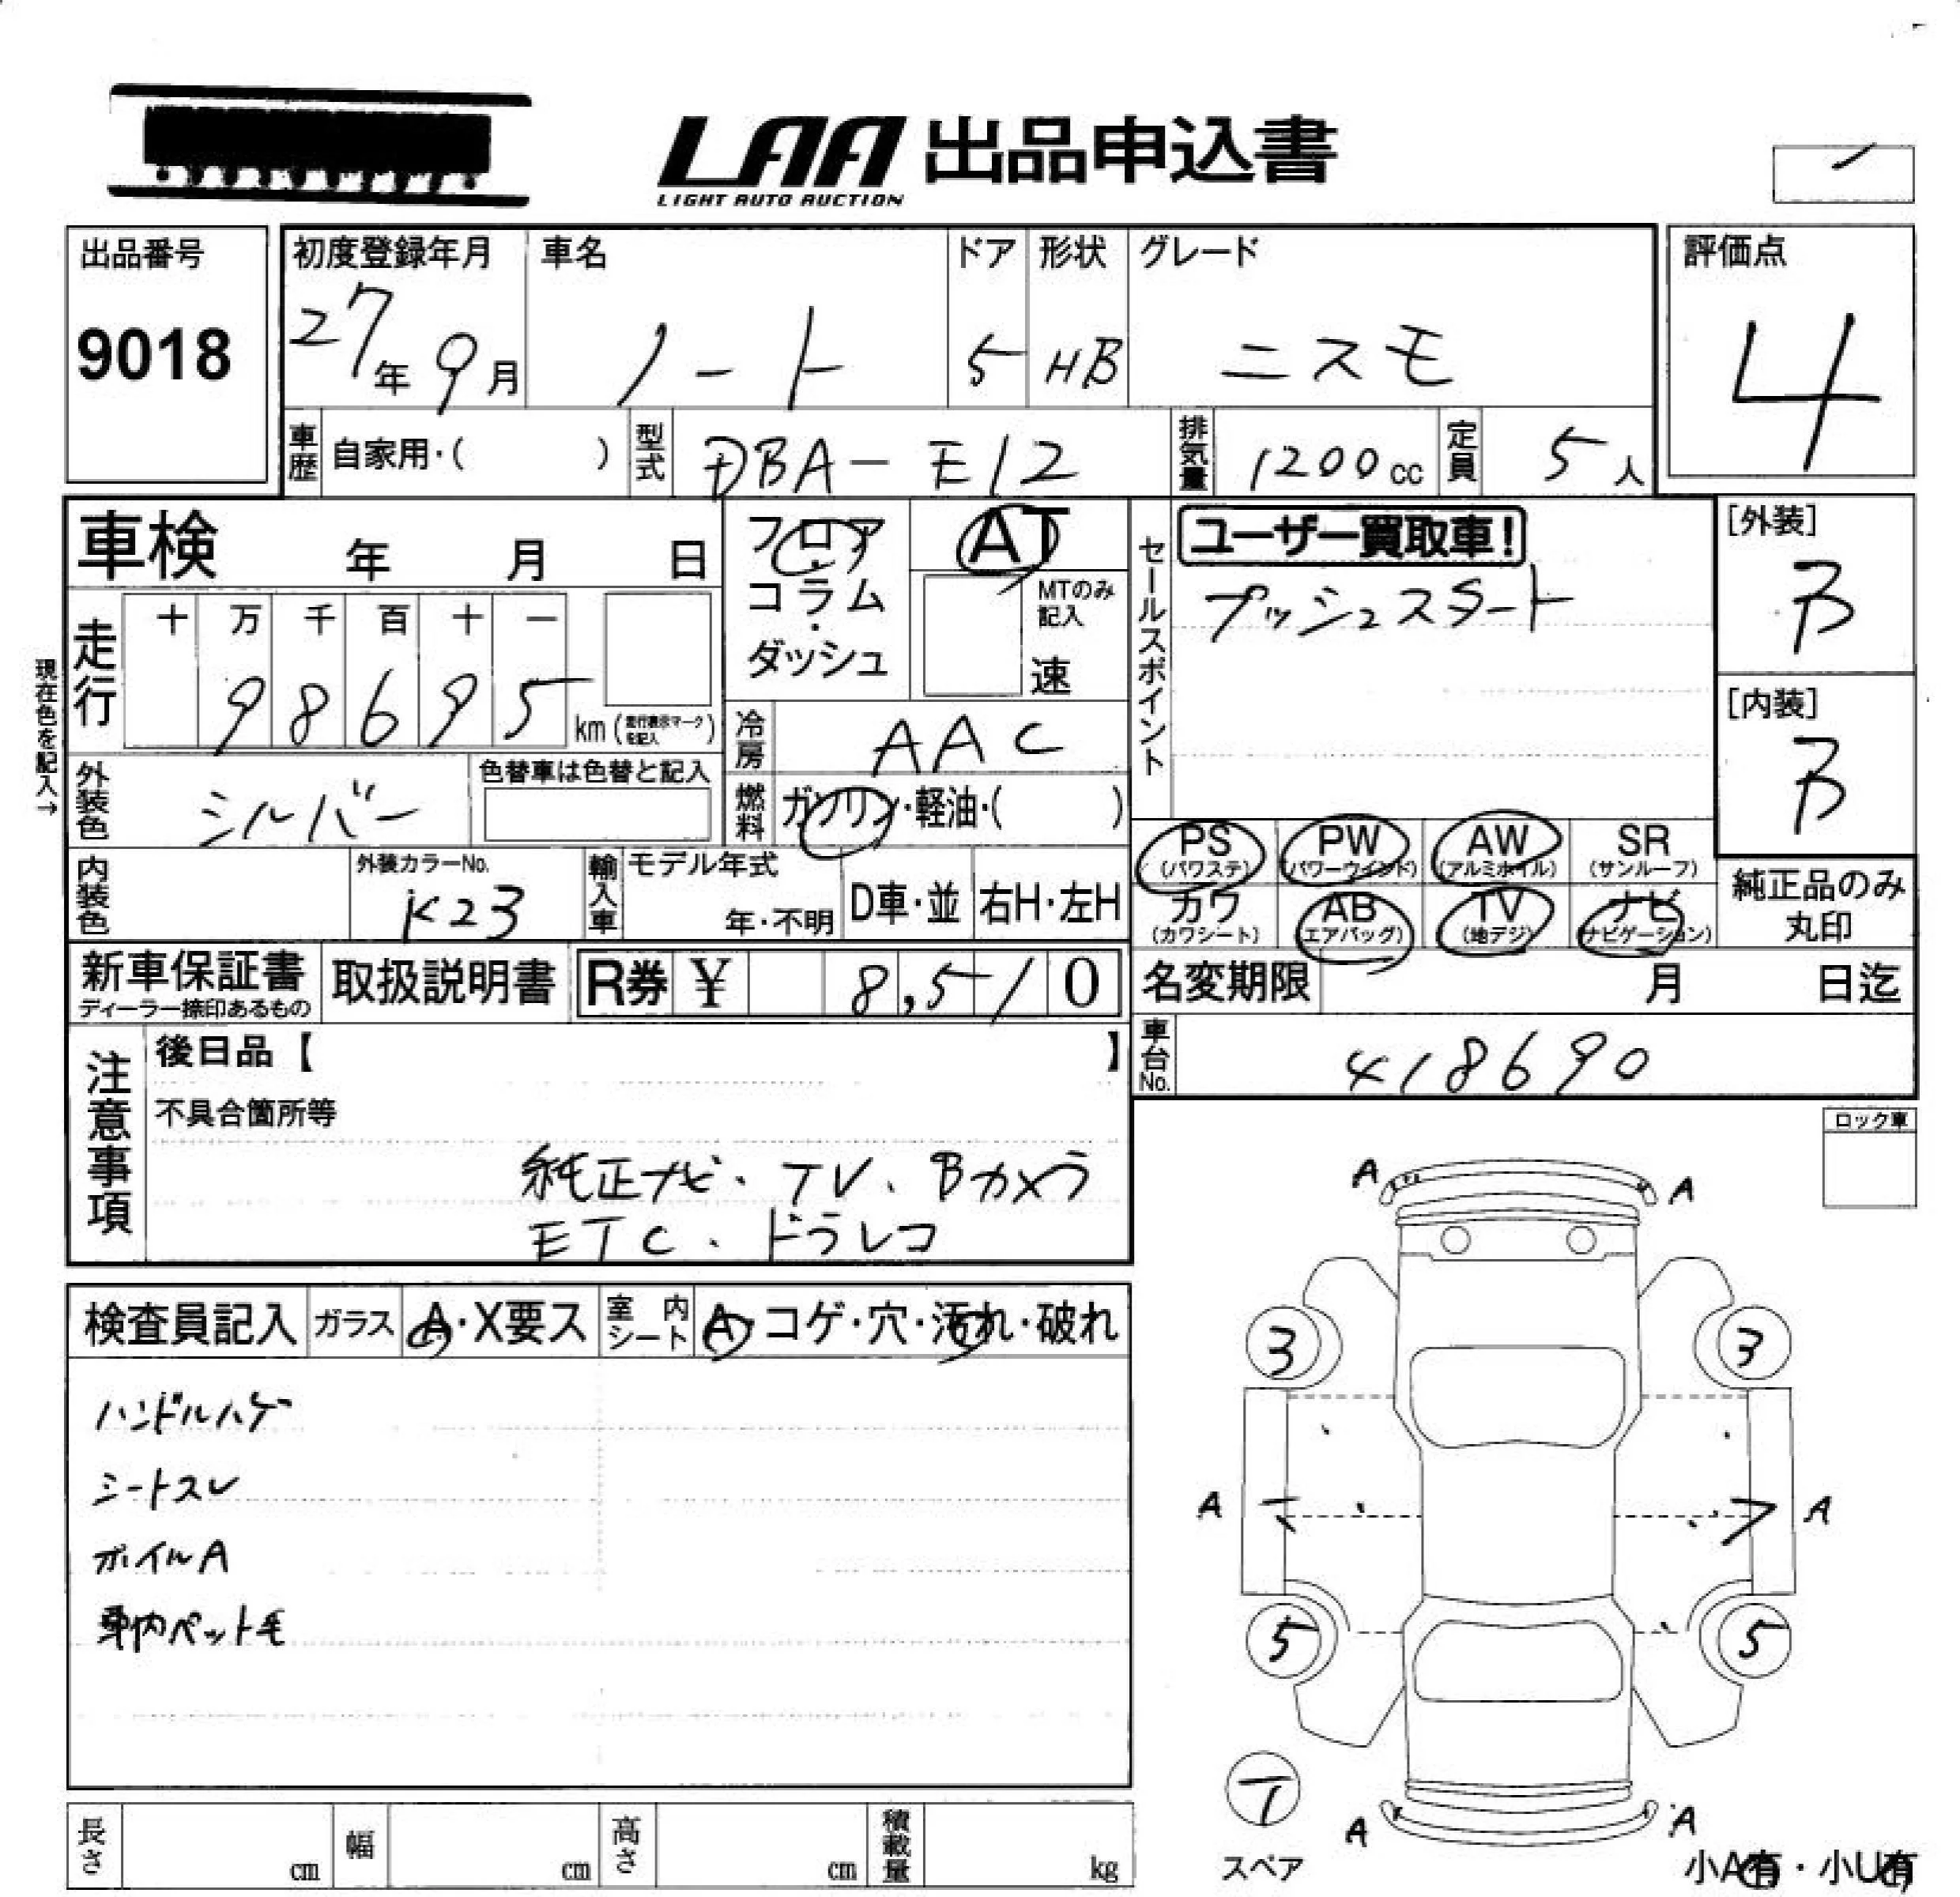 LAA 出品申込書
LIGHT AUTO AUCTION
出品番号
9018
初度登録年月
27年 9月
車名
ノート
ドア
5
形状
HB
グレード
ニスモ
評価点
4
車歴 自家用・( )
型式 DBA-E12
排気量 1200cc
定員 5人
車検 年 月 日
フロア
・
コラム
・
ダッシュ
AT
MTのみ記入
速
セールスポイント
ユーザー買取車!
プッシュスタート
[外装]
B
[内装]
B
現在色を記入→
走行 十 万 千 百 十 一
98695 km (走行表示マークを記入)
冷房 AAC
外装色 シルバー
色替車は色替と記入
燃料 ガソリン・軽油・( )
内装色
外装カラーNo.
K23
輸入車
モデル年式
年・不明
D車・並
右H・左H
PS (パワステ)
PW (パワーウインド)
AW (アルミホイル)
SR (サンルーフ)
カワ (カワシート)
AB (エアバッグ)
TV (地デジ)
ナビ (ナビゲーション)
純正品のみ
丸印
新車保証書
ディーラー捺印あるもの
取扱説明書
R券 ¥ 8,510
名変期限 月 日迄
車台No. 418690
注意事項
後日品【 】
不具合箇所等
純正ナビ、TV、Bカメラ
ETC、ドラレコ
ロック車
検査員記入
ガラス A・X要ス
室内シート A・コゲ・穴・汚れ・破れ
ハンドルハゲ
シートスレ
ホイルA
車内ペット毛
A A
3 3
A A
5 5
T
スペア
A A
小A有・小U有
長さ cm
幅 cm
高さ cm
積載量 kg